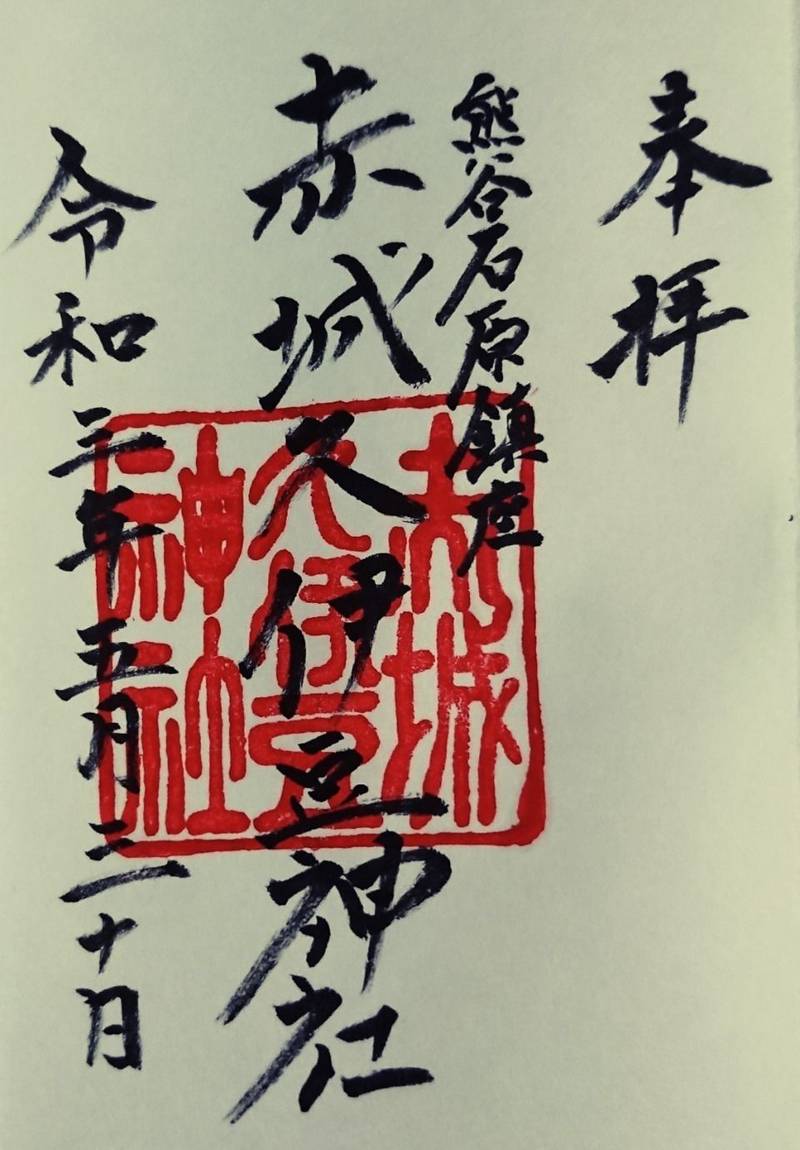 奉拝
熊谷石原鎮座
赤城久伊豆神社
令和三年五月三十日
赤城
久伊豆
神社